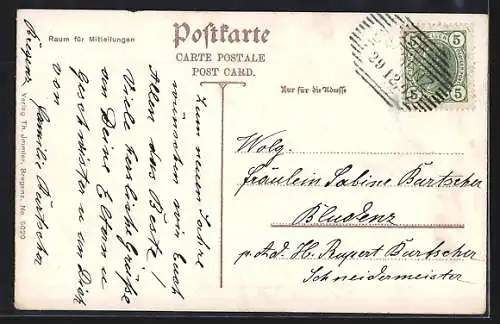 Raum für Mitteilungen
Postkarte
CARTE POSTALE
POST CARD.
Nur für die Adresse
5 5
5 5
29 12
Zum neuen Jahre
wünschen wir Euch
Allen das Beste!
Viele herzliche Grüße
an Deine Eltern u
Geschwister u an Dich
von Familie Burtscher
Bregenz
Verlag Th. Immler, Bregenz. No. 5020
Wolg.
Fräulein Sabine Burtscher
Bludenz
p. Ad. H. Rupert Burtscher
Schneidermeister